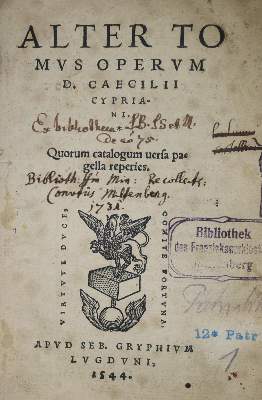 ALTER TO
MVS OPERVM
D. CAECILII
CYPRIA-
NI
Ex bibliotheca
Quorum catalogum uersa pa-
gella reperies.
Biblioth: Min: Recollect:
Conventus Miltenberg.
1731.
VIRTVTE DVCE,
COMITE FORTVNA.
Bibliothek
des Franziskanerklosters
Miltenberg
12° Patr
1
APVD SEB. GRYPHIVM
LVGDVNI,
1544.